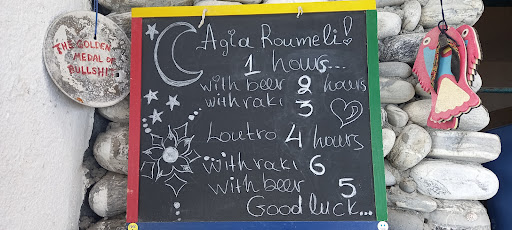 THE GOLDEN
MEDAL OF
BULLSHI
Agia Roumeli!
1 hours...
with beer 2 hours
with raki 3
Loutro 4 hours
with raki 6
with beer 5
Good luck...